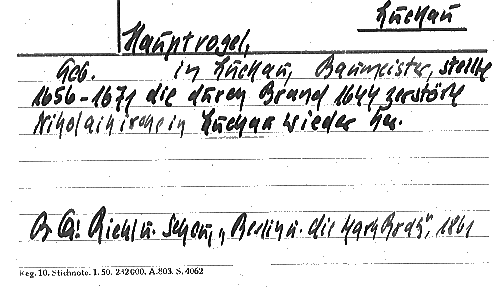 Luckau
Hauptvogel,
Geb. in Luckau, Baumeister, stellte
1656-1671 die durch Brand 1644 zerstörte
Nikolaikirche in Luckau wieder her.
B Q: Riehl u. Scheu, "Berlin u. die Mark Brdbg", 1861
Reg. 10. Stichnote. 1. 50. 232000. A.803. S. 4062